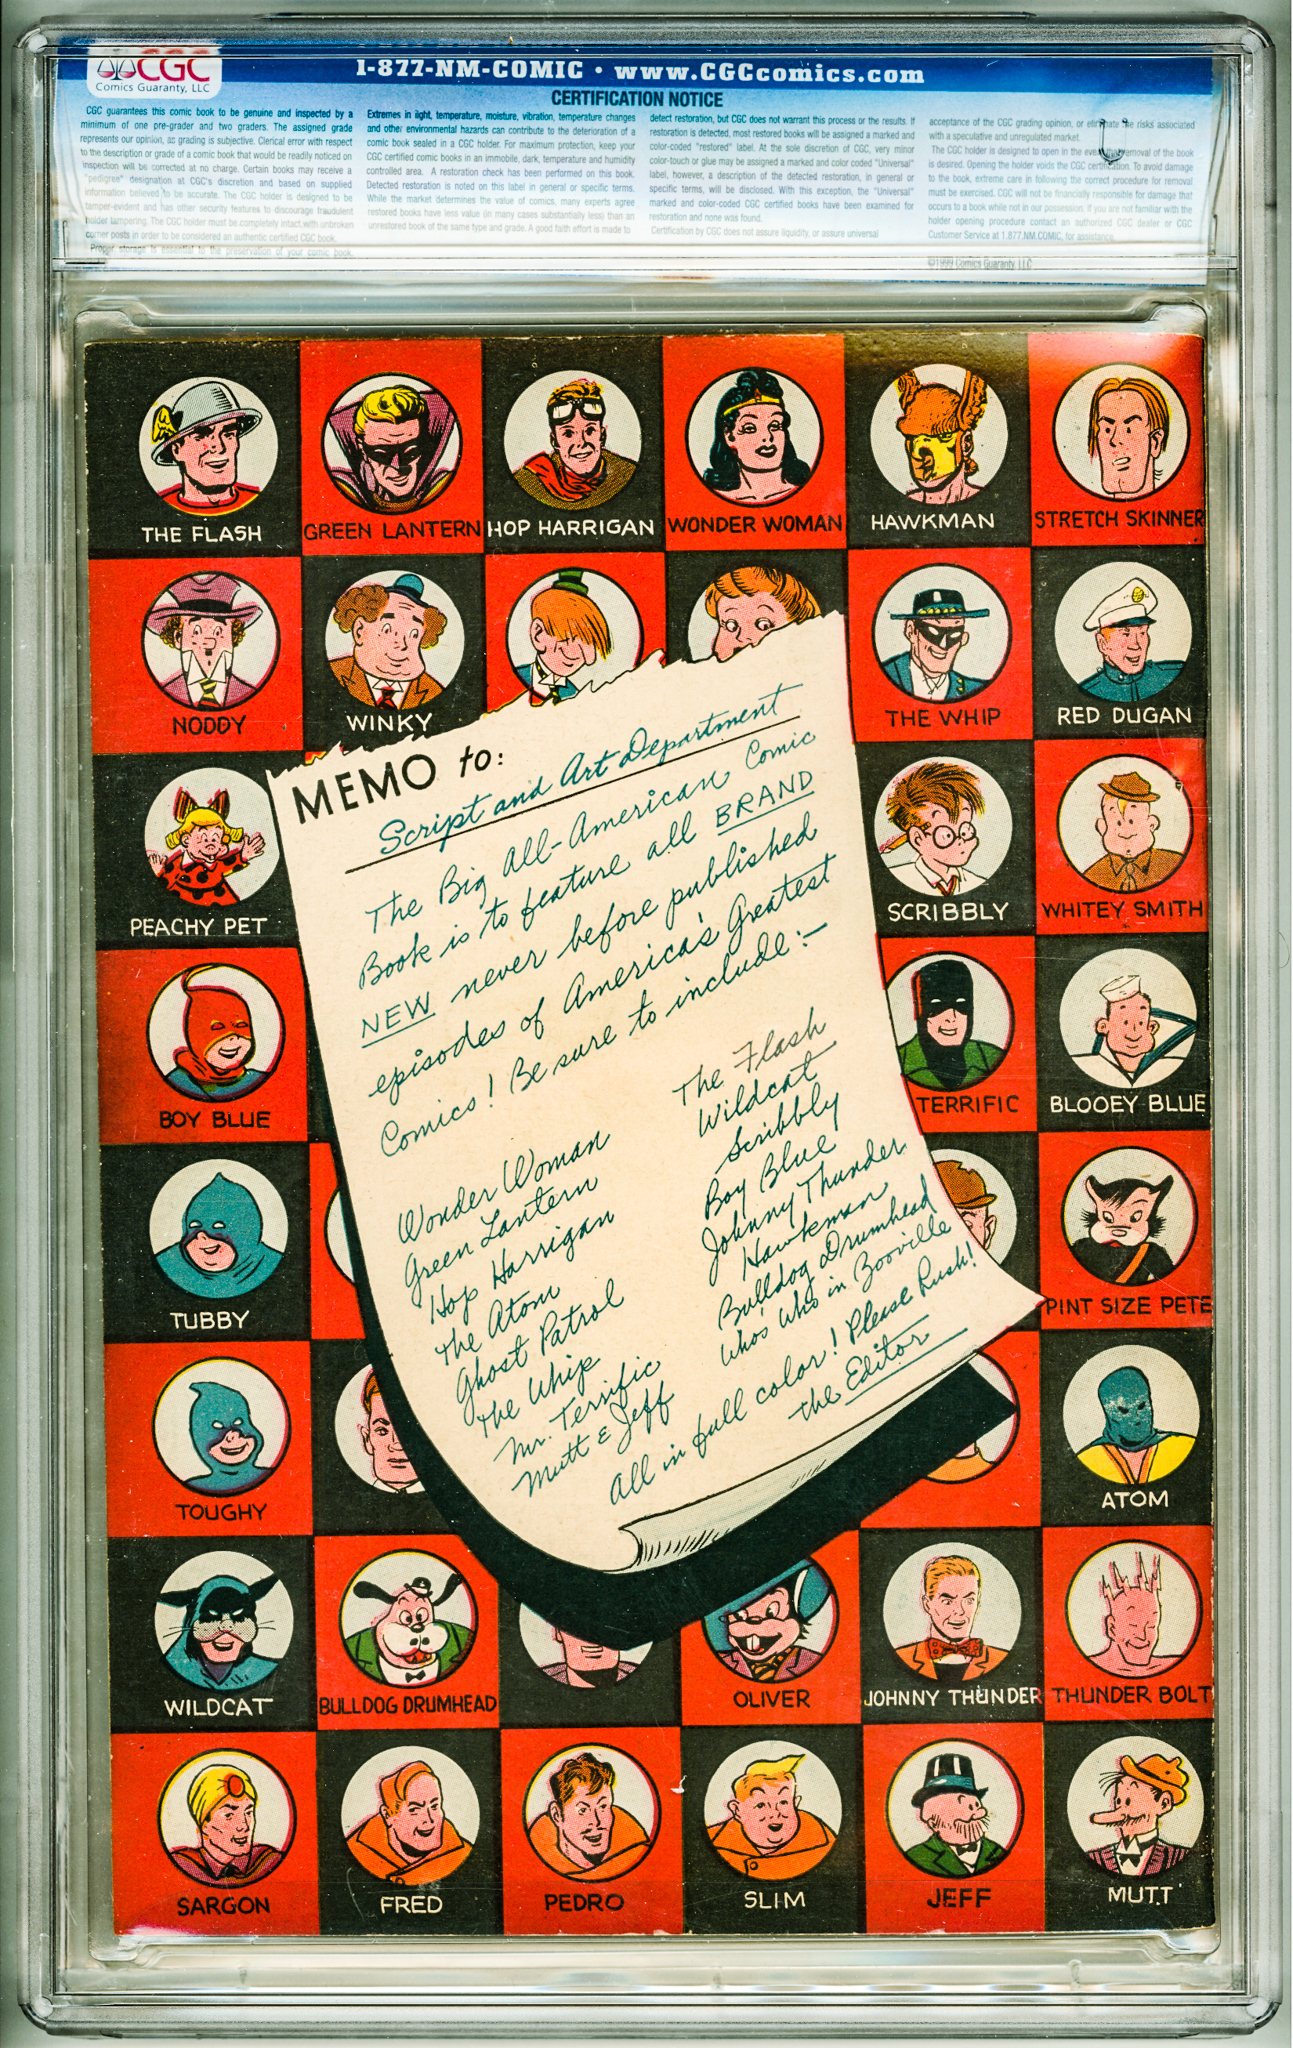 CGC
Comics Guaranty, LLC
1-877-NM-COMIC • www.CGCcomics.com
CERTIFICATION NOTICE
CGC guarantees this comic book to be genuine and inspected by a
minimum of one pre-grader and two graders. The assigned grade
represents our opinion, as grading is subjective. Clerical error with respect
to the description or grade of a comic book that would be readily noticed on
inspection will be corrected at no charge. Certain books may receive a
"pedigree" designation at CGC's discretion and based on supplied
information believed to be accurate. The CGC holder is designed to be
tamper-evident and has other security features to discourage fraudulent
holder tampering. The CGC holder must be completely intact with unbroken
corner posts in order to be considered an authentic certified CGC book.
Proper storage is essential to the preservation of your comic book.
Extremes in light, temperature, moisture, vibration, temperature changes
and other environmental hazards can contribute to the deterioration of a
comic book sealed in a CGC holder. For maximum protection, keep your
CGC certified comic books in an immobile, dark, temperature and humidity
controlled area. A restoration check has been performed on this book.
Detected restoration is noted on this label in general or specific terms.
While the market determines the value of comics, many experts agree
restored books have less value (in many cases substantially less) than an
unrestored book of the same type and grade. A good faith effort is made to
detect restoration, but CGC does not warrant this process or the results. If
restoration is detected, most restored books will be assigned a marked and
color-coded "restored" label. At the sole discretion of CGC, very minor
color-touch or glue may be assigned a marked and color coded "Universal"
label, however, a description of the detected restoration, in general or
specific terms, will be disclosed. With this exception, the "Universal"
marked and color-coded CGC certified books have been examined for
restoration and none was found.
Certification by CGC does not assure liquidity, or assure universal
acceptance of the CGC grading opinion, or eliminate the risks associated
with a speculative and unregulated market.
The CGC holder is designed to open in the event removal of the book
is desired. Opening the holder voids the CGC certification. To avoid damage
to the book, extreme care in following the correct procedure for removal
must be exercised. CGC will not be financially responsible for damage that
occurs to a book while not in our possession. If you are not familiar with the
holder opening procedure contact an authorized CGC dealer or CGC
Customer Service at 1.877.NM.COMIC, for assistance.
©1999 Comics Guaranty, LLC
THE FLASH
GREEN LANTERN
HOP HARRIGAN
WONDER WOMAN
HAWKMAN
STRETCH SKINNER
NODDY
WINKY
THE WHIP
RED DUGAN
PEACHY PET
SCRIBBLY
WHITEY SMITH
BOY BLUE
TERRIFIC
BLOOEY BLUE
TUBBY
PINT SIZE PETE
TOUGHY
ATOM
WILDCAT
BULLDOG DRUMHEAD
OLIVER
JOHNNY THUNDER
THUNDER BOLT
SARGON
FRED
PEDRO
SLIM
JEFF
MUTT
MEMO to:
Script and Art Department
The Big All-American Comic
Book is to feature all BRAND
NEW never before published
episodes of America's Greatest
Comics! Be sure to include:-
Wonder Woman
Green Lantern
Hop Harrigan
The Atom
Ghost Patrol
The Whip
Mr. Terrific
Mutt & Jeff
The Flash
Wildcat
Scribbly
Boy Blue
Johnny Thunder
Hawkman
Bulldog Drumhead
Who's Who in Booville
All in full color! Please Rush!
The Editor